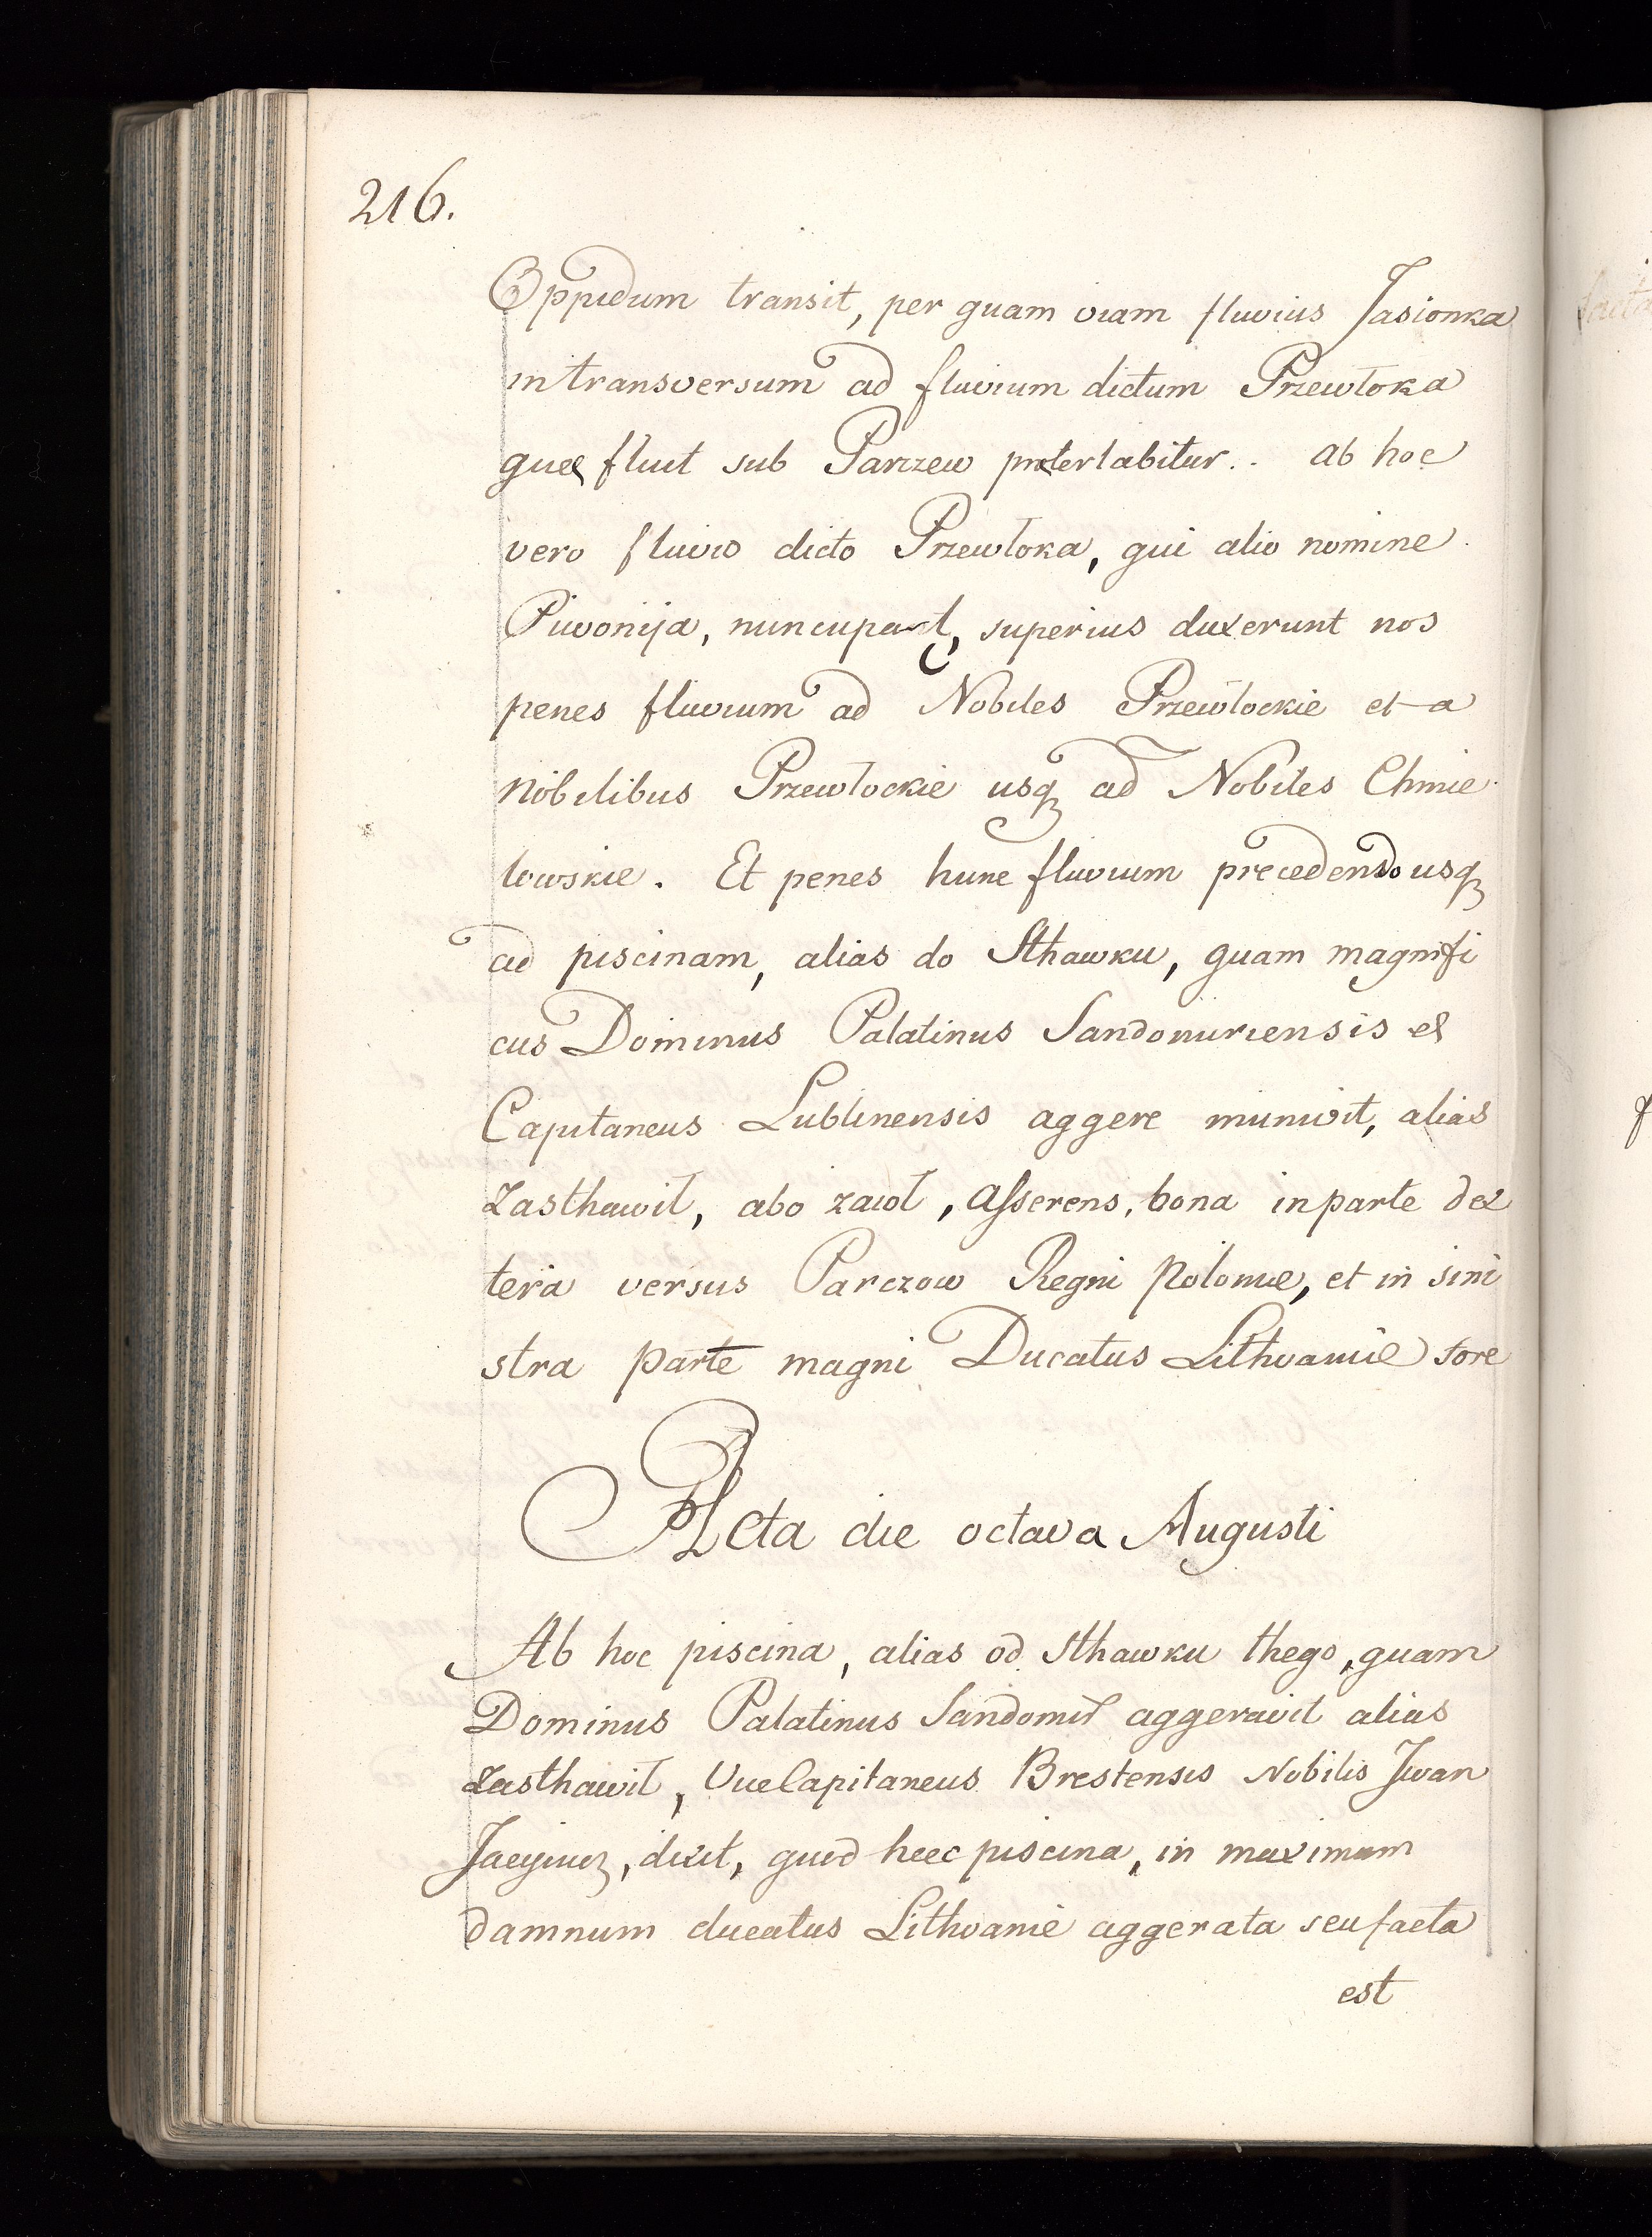 216.
Oppidum transit, per quam viam fluvius Jasionka
in transversum ad fluvium dictum Przewłoka
quæ fluit sub Parczew preterlabitur. ab hoc
vero fluvio dicto Przewłoka, qui alio nomine
Piwonija, nuncupat, superius duxerunt nos
penes fluvium ad Nobiles Przewłockie et a
nobilibus Przewłockie usq ad Nobiles Chmie
lowskie. Et penes hunc fluvium precedendo usq
ad piscinam, alias do Sthawku, quam magnifi
cus Dominus Palatinus Sandomiriensis et
Capitaneus Lublinensis aggere munivit, alias
Zasthawił, abo zaioł, asserens, bona in parte dex
tera versus Parczow Regni Polonie, et in sini
stra parte magni Ducatus Lithvanie fore
Acta die octava Augusti
Ab hoc piscina, alias od Sthawku thego, quam
Dominus Palatinus Sandomir aggeravit alias
Zasthawił, Vice Capitaneus Brestensis Nobilis Jwan
dixit, quod heec piscina, in maximum
damnum ducatus Lithvanie aggerata seu facta
est